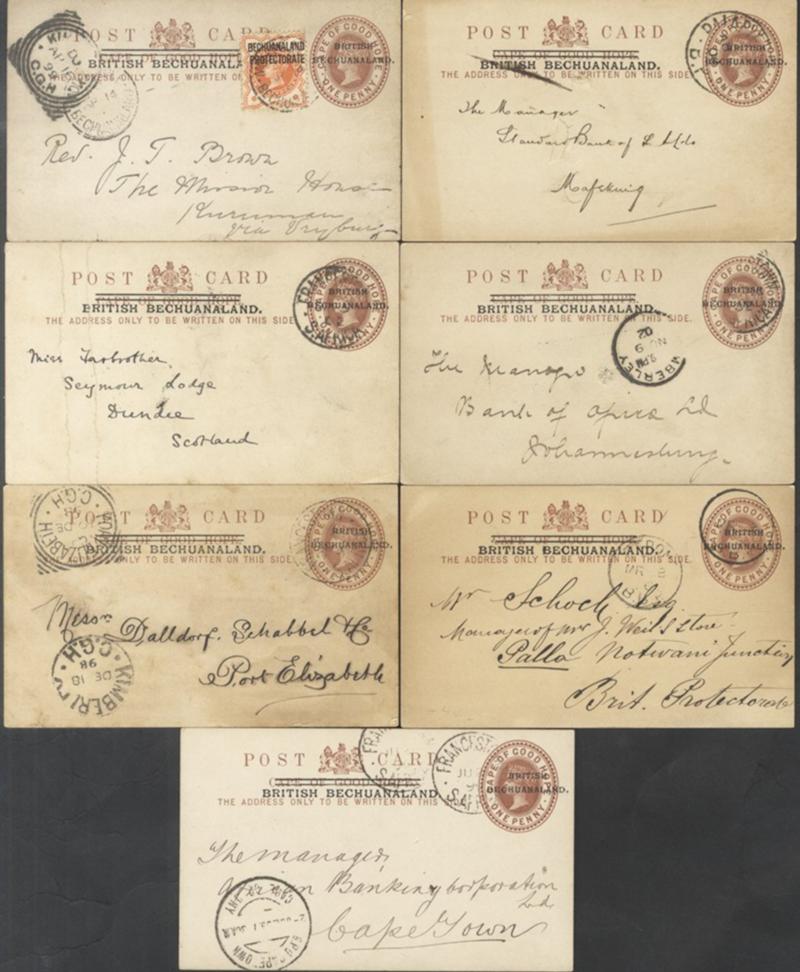 POST CARD
CAPE OF GOOD HOPE.
BRITISH BECHUANALAND.
THE ADDRESS ONLY TO BE WRITTEN ON
CAPE OF GOOD HOPE
BRITISH
BECHUANALAND.
ONE PENNY
BECHUANALAND
PROTECTORATE
C.G.H
Rev. J. T. Brown
The Mission House
Kuruman
via Vryburg
POST CARD
CAPE OF GOOD HOPE.
BRITISH BECHUANALAND.
THE ADDRESS ONLY TO BE WRITTEN ON THIS SIDE.
BRITISH
BECHUANALAND.
ONE PENNY
The Manager
Standard Bank of S
Mafeking
POST CARD
CAPE OF GOOD HOPE.
BRITISH BECHUANALAND.
THE ADDRESS ONLY TO BE WRITTEN ON THIS SIDE.
BRITISH
BECHUANALAND.
Miss Tarbrother,
Seymour Lodge
Dundee
Scotland
POST CARD
CAPE OF GOOD HOPE.
BRITISH BECHUANALAND.
THE ADDRESS ONLY TO BE WRITTEN ON THIS SIDE.
CAPE OF GOOD HOPE
BRITISH
BECHUANALAND.
ONE PENNY
MBERLEY
9 PM
NO 9
02
The Manager
Bank of Africa Ld
Johannesburg
POST CARD
CAPE OF GOOD HOPE.
BRITISH BECHUANALAND.
THE ADDRESS ONLY TO BE WRITTEN ON THIS SIDE.
BRITISH
BECHUANALAND.
ONE PENNY
C.G.H
Messrs
Dalldorf, Schabbel & Co
Port Elizabeth
KIMBERLEY C.G.H
DE 18
98
POST CARD
CAPE OF GOOD HOPE.
BRITISH BECHUANALAND.
THE ADDRESS ONLY TO BE WRITTEN ON THIS SIDE.
BRITISH
BECHUANALAND.
ONE PENNY
Mr Schoch Esq.
Manager of Mr J. Weil's Store
Palla Notwani Junction
Brit. Protectorate
POST CARD
CAPE OF GOOD HOPE.
BRITISH BECHUANALAND.
THE ADDRESS ONLY TO BE WRITTEN ON THIS
FRANCEST
CAPE OF GOOD HOPE
BRITISH
BECHUANALAND.
ONE PENNY
The Manager,
African Banking Corporation
Ld.
Cape Town
GPO CAPE TOWN